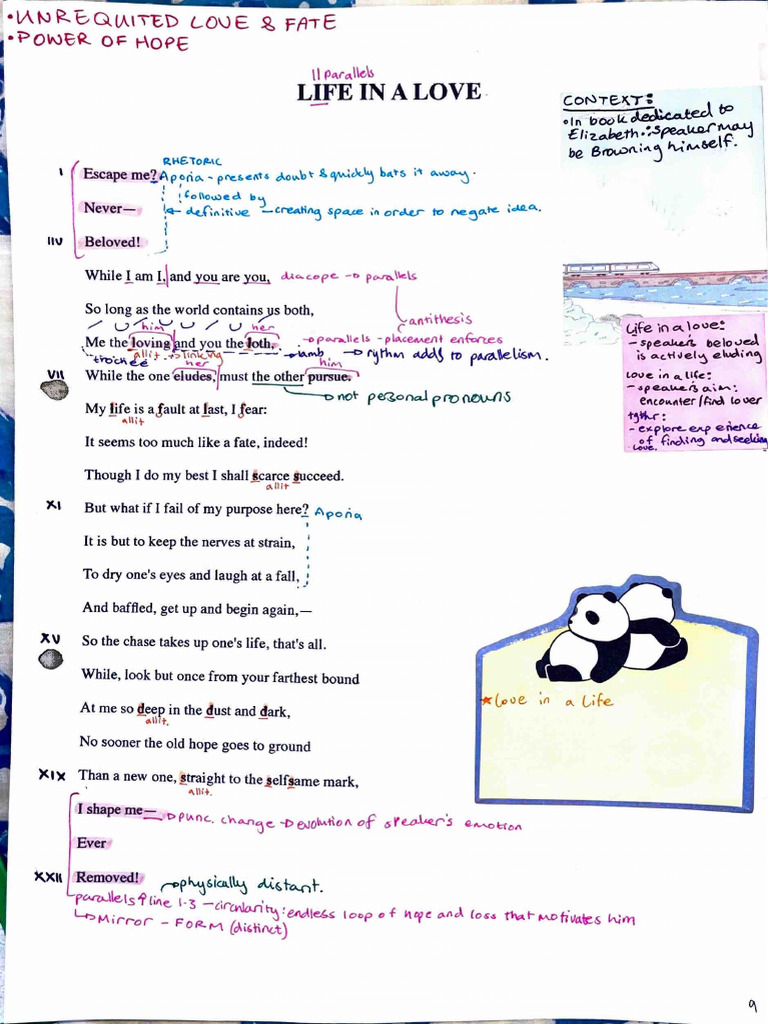 •UNREQUITED LOVE & FATE
•POWER OF HOPE
11 parallels
LIFE IN A LOVE
CONTEXT:
•In book dedicated to
Elizabeth ∴ speaker may
be Browning himself.
RHETORIC
I Escape me? Aporia - presents doubt & quickly bats it away.
followed by
Never— ← definitive - creating space in order to negate idea.
IIV Beloved!
While I am I, and you are you, diacope → parallels
So long as the world contains us both,
antithesis
him her
Me the loving and you the loth, → parallels - placement enforces
trochee allit → linking → iamb → rythm adds to parallelism.
her him
VII While the one eludes, must the other pursue.
→ not personal pronouns
My life is a fault at last, I fear:
allit
It seems too much like a fate, indeed!
Though I do my best I shall scarce succeed.
allit
Life in a love:
- speakers beloved
is actively eluding
love in a life:
- speaker's aim:
encounter/find lover
tgthr:
- explore experience
of finding and seeking
love.
XI But what if I fail of my purpose here? Aporia
It is but to keep the nerves at strain,
To dry one's eyes and laugh at a fall,
And baffled, get up and begin again,—
XV So the chase takes up one's life, that's all.
While, look but once from your farthest bound
At me so deep in the dust and dark,
allit.
No sooner the old hope goes to ground
★Love in a Life
XIX Than a new one, straight to the selfsame mark,
allit.
I shape me— → punc. change → evolution of speaker's emotion
Ever
XXII Removed! → physically distant.
parallels ↑ line 1-3 - circularity: endless loop of hope and loss that motivates him
↳ Mirror - FORM (distinct)
9